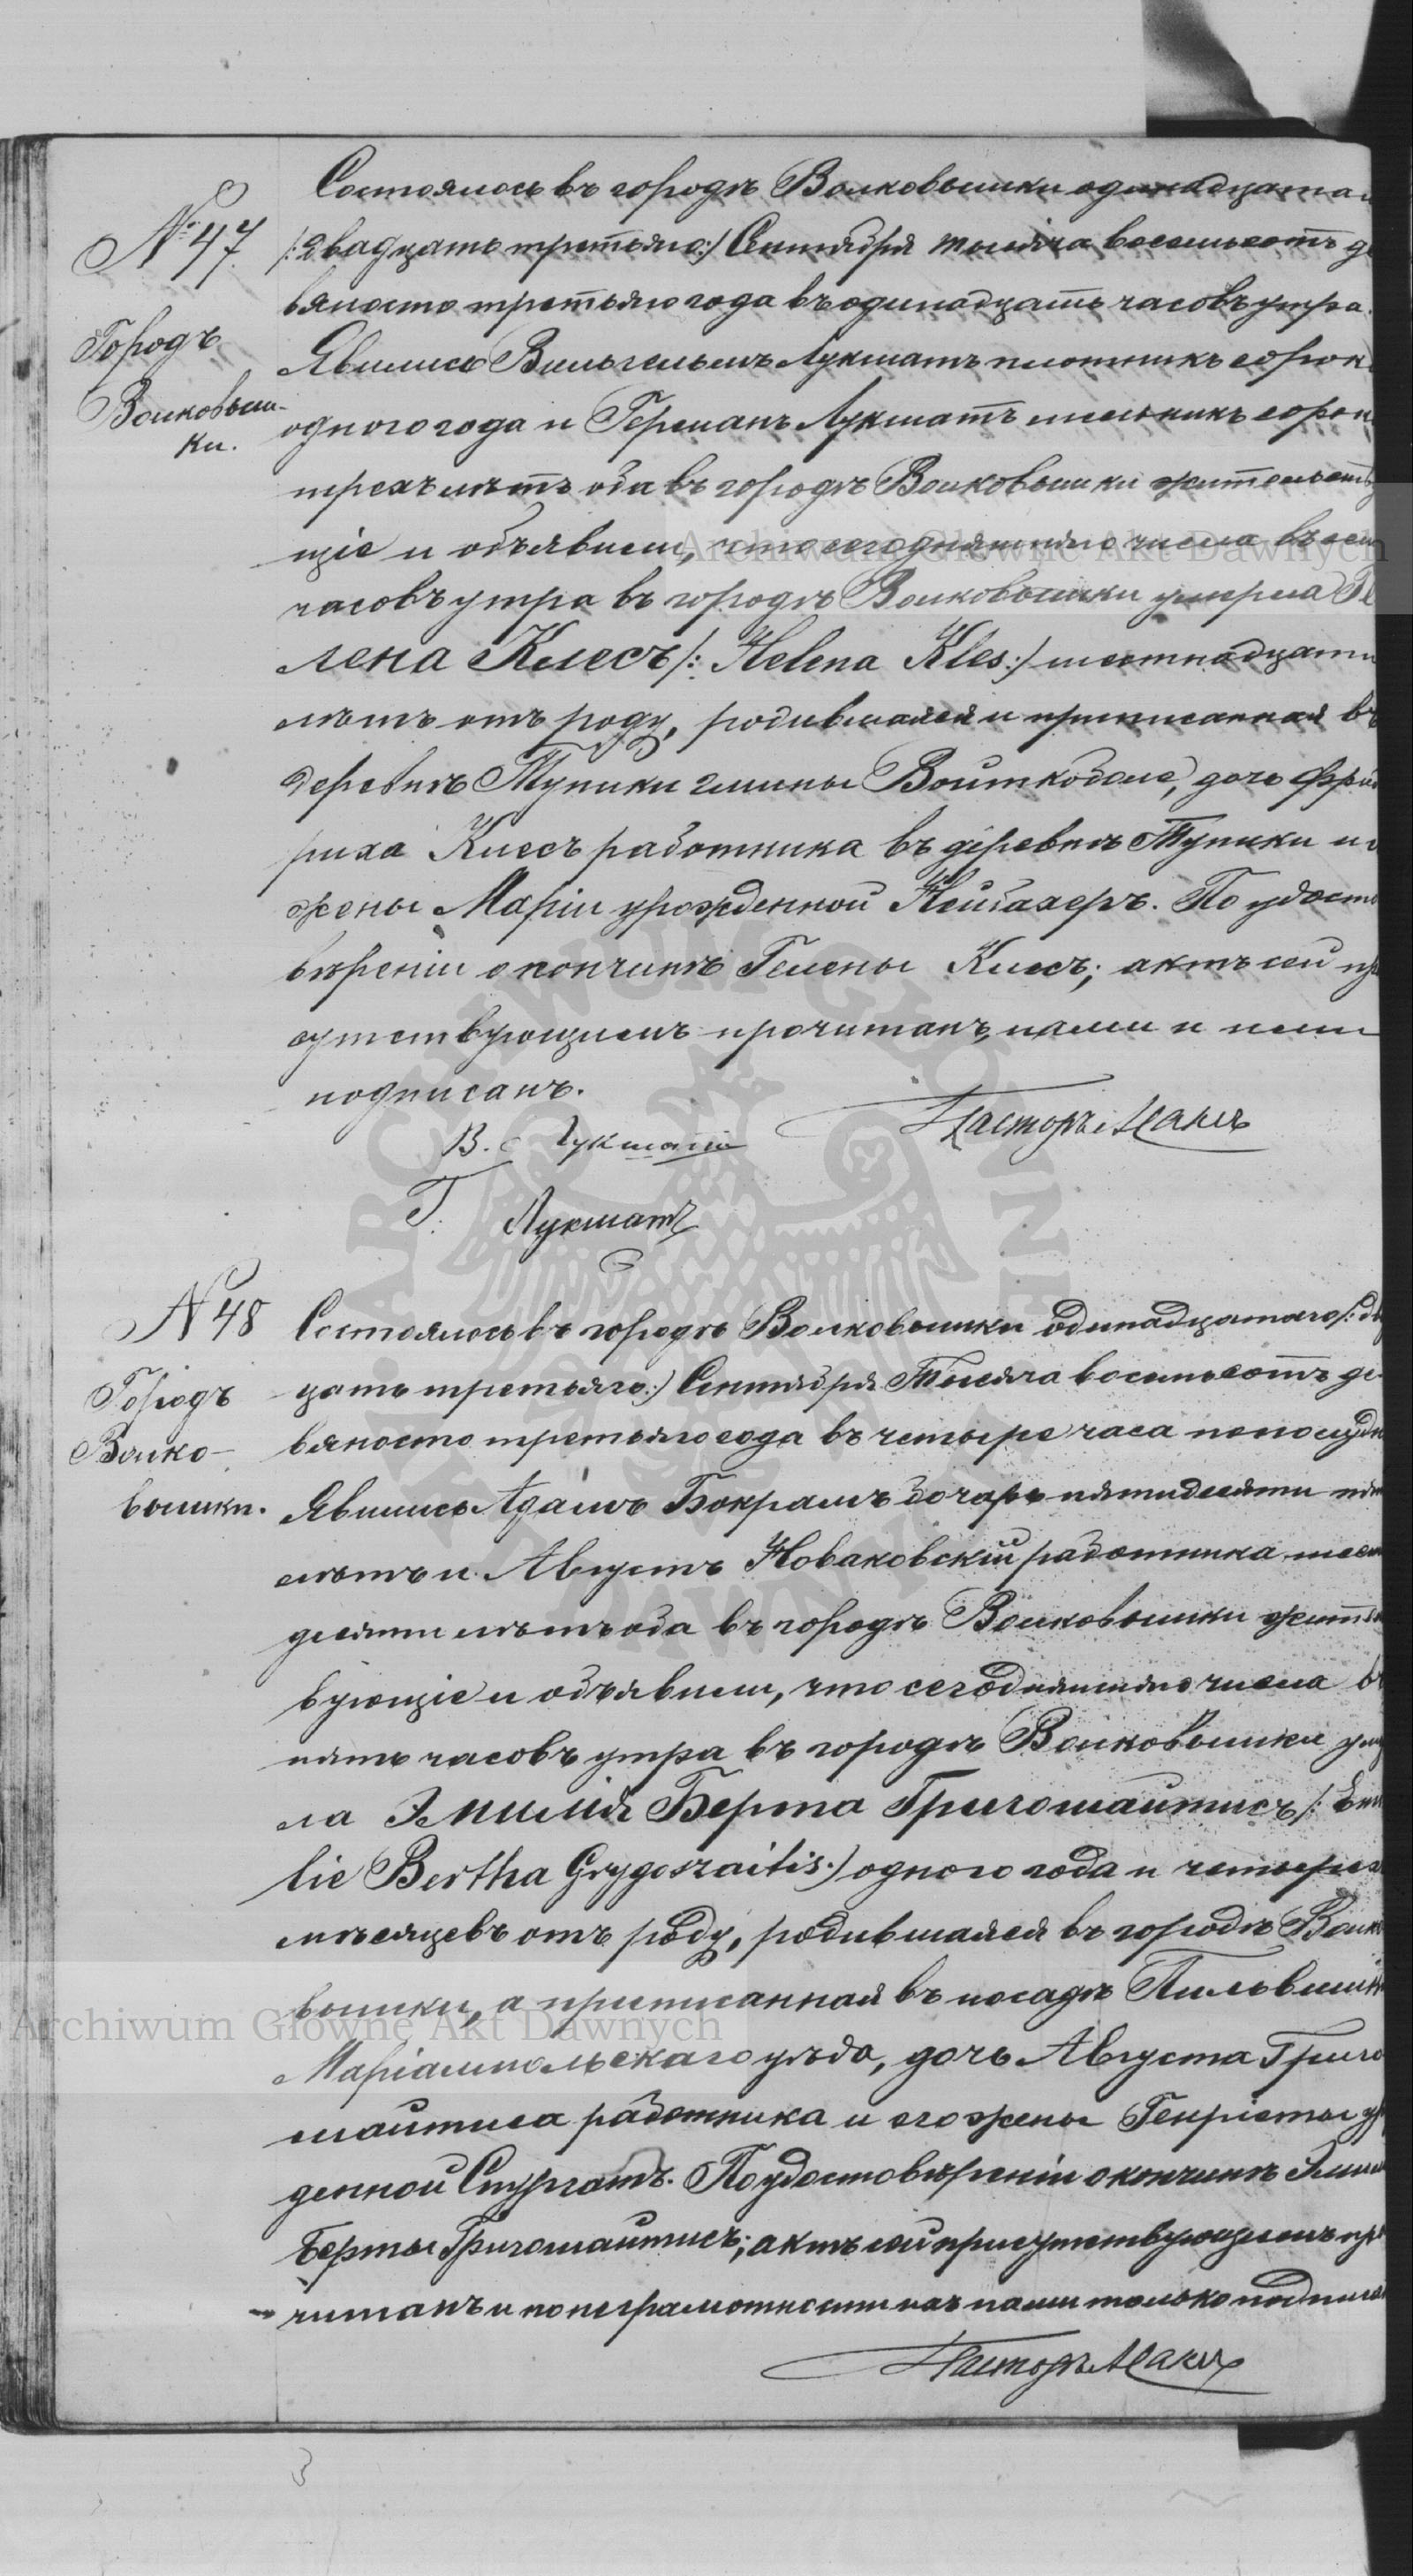 № 47.
Городъ
Волковыш-
ки.
Состоялось въ городѣ Волковышки одинадцата
/:двадцать третьяго:/ Сентября тысяча восемьсотъ де
вяносто третьяго года въ одинадцать часовъ утра.
Явились Вильгельмъ Лукшатъ плотникъ сорок
одного года и Германъ Лукшатъ мельникъ сорок
трехъ лѣтъ оба въ городѣ Волковышки жительств
щіе и объявили, что сегодняшняго числа въ
часовъ утра въ городѣ Волковышки умерла Ге
лена Клесъ /: Helena Kles :/ шестнадцати
лѣтъ отъ роду, родившаяся и приписанная въ
деревнѣ Тупики гмины Войткоболе, дочь Фрид
риха Клесъ работника въ деревнѣ Тупики и
жены Маріи урожденной Нейбахеръ. По удосто
вѣреніи о кончинѣ Гелены Клесъ; актъ сей пр
сутствующимъ прочитанъ, нами и ими
подписанъ.
В. Лукшатъ
Пасторъ
Г. Лукшатъ
№ 48
Городъ
Волко-
вышки.
Состоялось въ городѣ Волковышки одинадцатаго /: дв
цать третьяго:/ Сентября Тысяча восемьсотъ де-
вяносто третьяго года въ четыре часа пополудн
Явились Адамъ Бокрамъ бочаръ пятидесяти пя
лѣтъ и Августъ Новаковскій работника шест
десяти лѣтъ оба въ городѣ Волковышки жите
вующіе и объявили, что сегодняшняго числа въ
пять часовъ утра въ городѣ Волковышки уме
ла Эмилія Берта Григошайтисъ /: Emi
lie Bertha Grygoszaitis :/ одного года и четырех
мѣсяцевъ отъ роду, родившаяся въ городѣ Волко
вышки, а приписанная въ посадѣ Пильвишки
Маріампольскаго уѣзда, дочь Августа Григо
шайтиса работника и его жены Генріеты ур
денной Стургатъ. По удостовѣреніи о кончинѣ Эмил
Берты Григошайтисъ; актъ сей присутствующимъ про
читанъ и по неграмотности ихъ нами только подписа
Пасторъ
Archiwum Główne Akt Dawnych
Archiwum Główne Akt Dawnych
ARCHIWUM GŁÓWNE AKT DAWNYCH